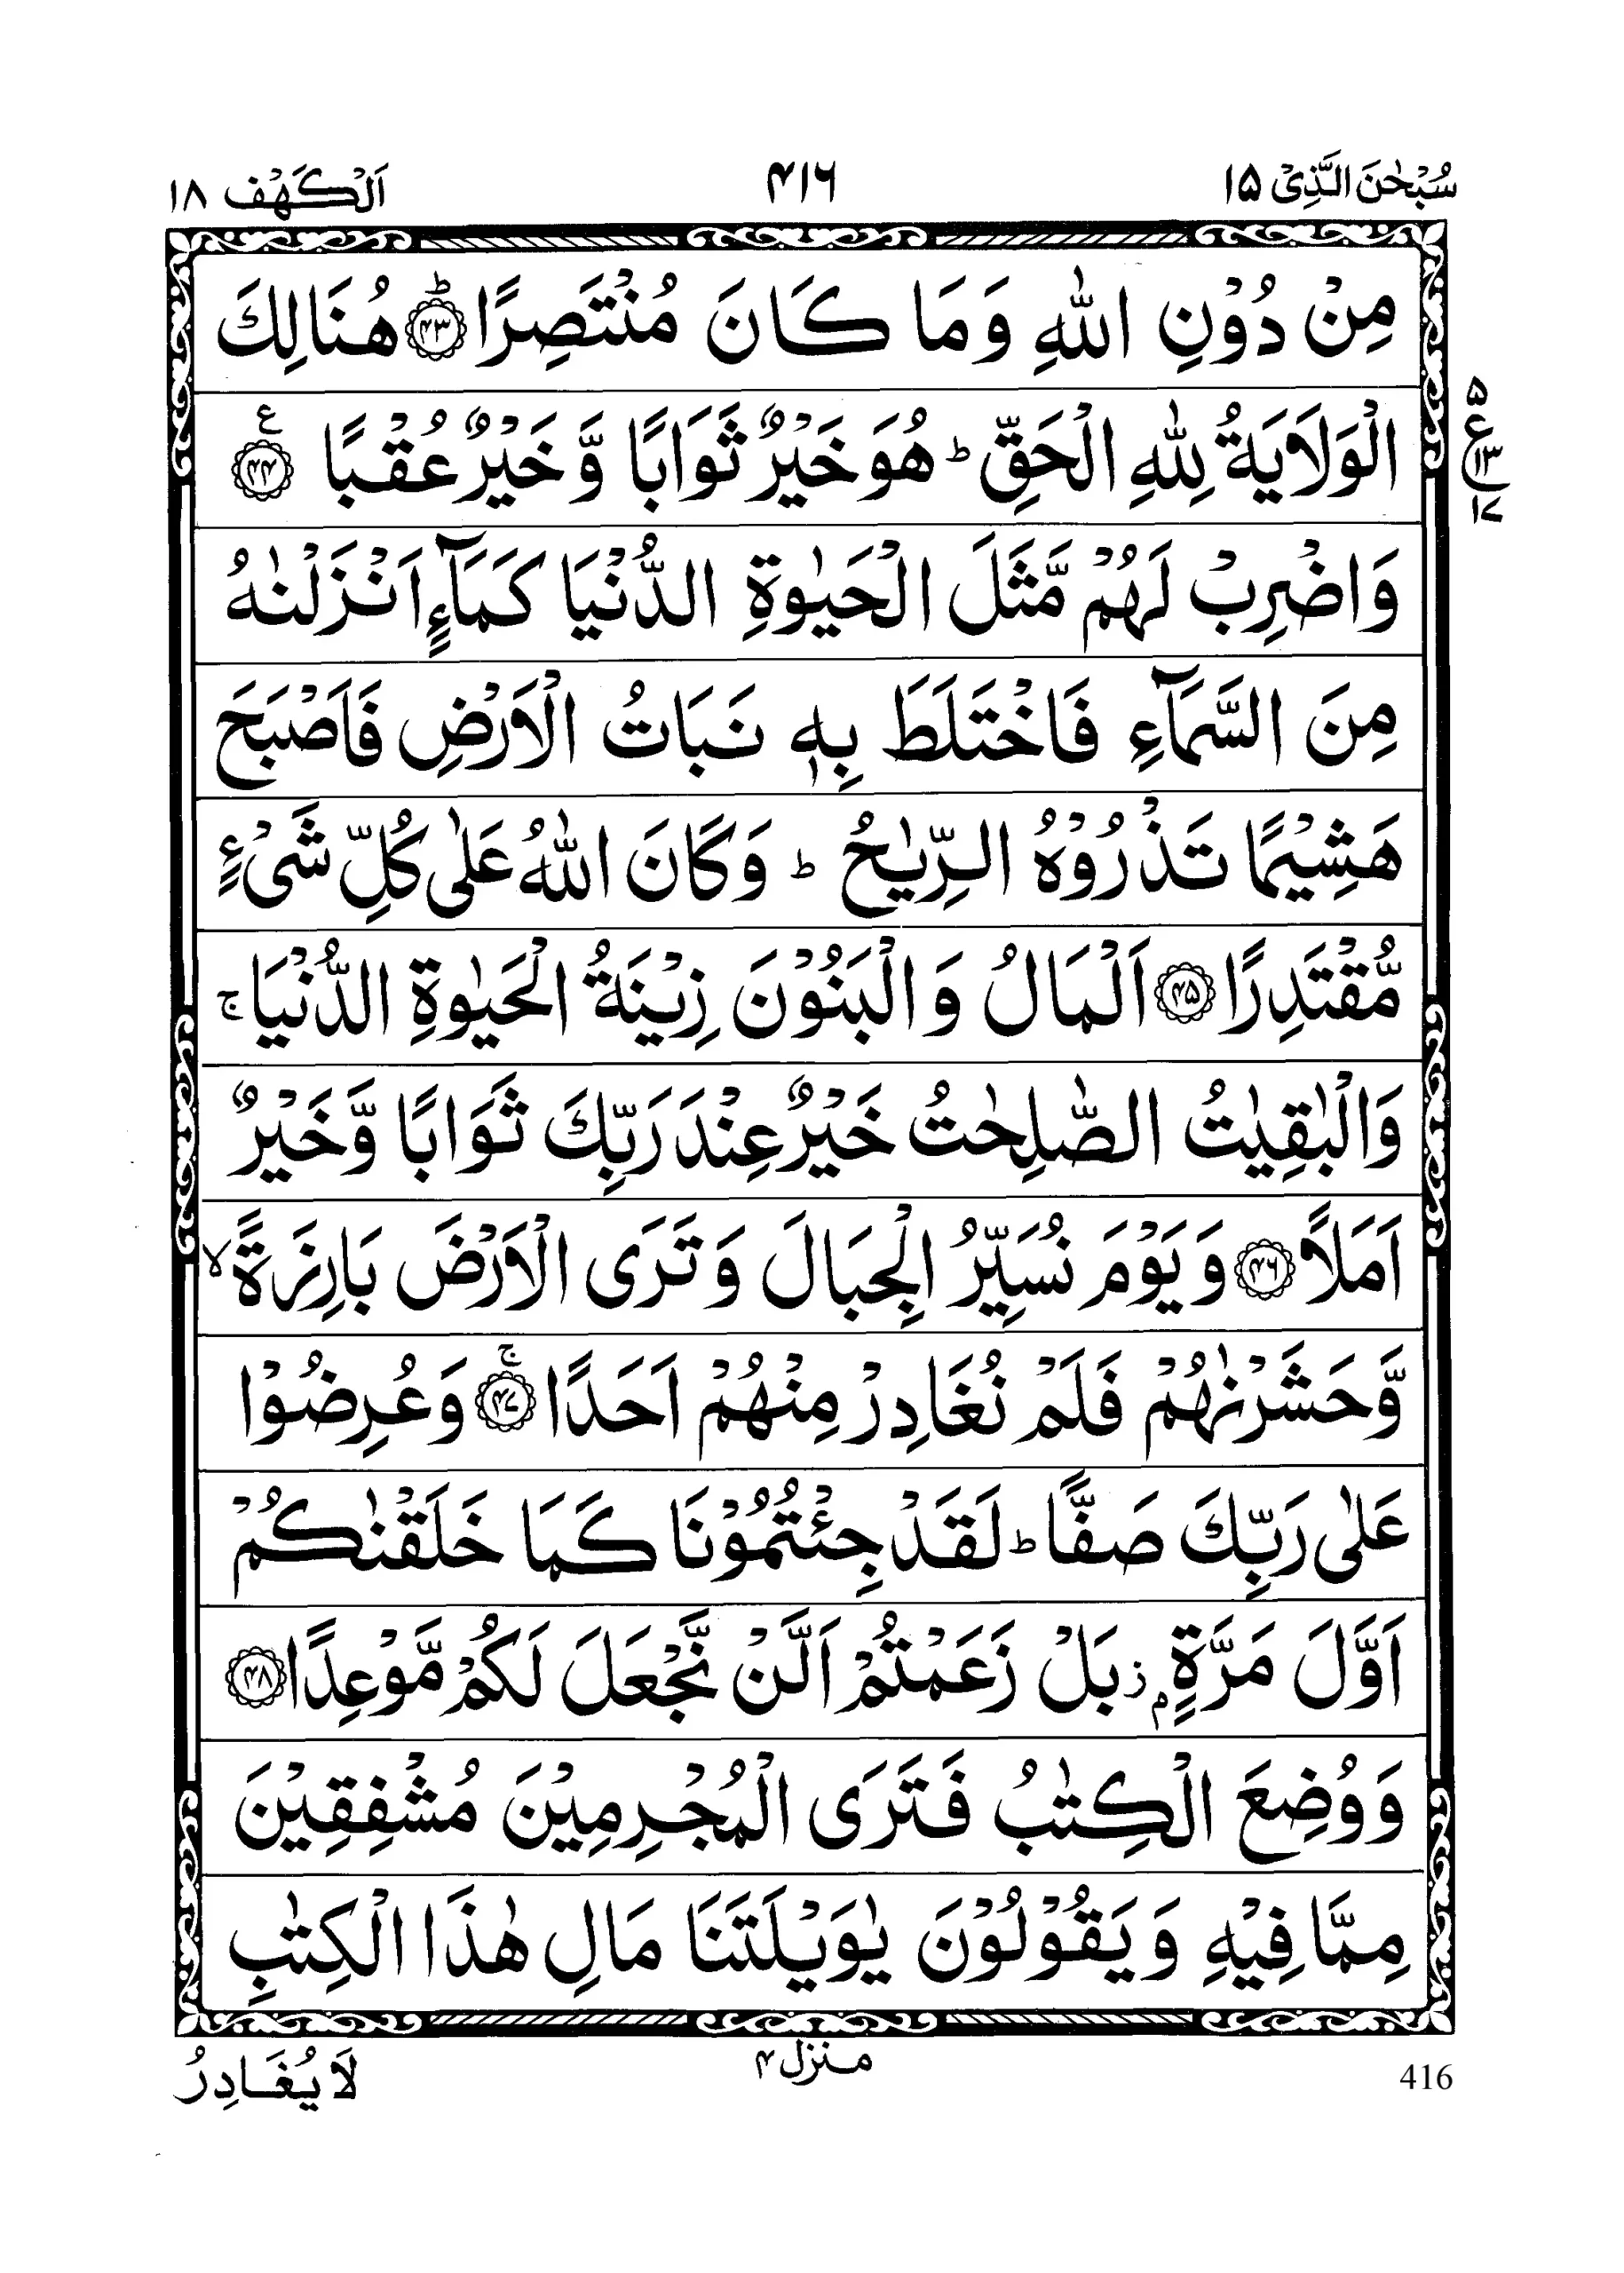 سُبْحٰنَ الَّذِیْۤ ۱۵
۴۱۶
اَلْكَهْف ۱۸
مِنْ دُوْنِ اللّٰهِ وَمَا كَانَ مُنْتَصِرًا ؕ ﴿۴۳﴾ هُنَالِكَ
الْوَلَایَةُ لِلّٰهِ الْحَقِّ ؕ هُوَ خَیْرٌ ثَوَابًا وَّ خَیْرٌ عُقْبًا ﴿۴۴﴾ ع
ع ۵ ۱۳ ۱۷
وَاضْرِبْ لَهُمْ مَّثَلَ الْحَیٰوةِ الدُّنْیَا كَمَآءٍ اَنْزَلْنٰهُ
مِنَ السَّمَآءِ فَاخْتَلَطَ بِهٖ نَبَاتُ الْاَرْضِ فَاَصْبَحَ
هَشِیْمًا تَذْرُوْهُ الرِّیٰحُ ؕ وَكَانَ اللّٰهُ عَلٰى كُلِّ شَیْءٍ
مُّقْتَدِرًا ﴿۴۵﴾ اَلْمَالُ وَالْبَنُوْنَ زِیْنَةُ الْحَیٰوةِ الدُّنْیَا ۚ
وَالْبٰقِیٰتُ الصّٰلِحٰتُ خَیْرٌ عِنْدَ رَبِّكَ ثَوَابًا وَّخَیْرٌ
اَمَلًا ﴿۴۶﴾ وَیَوْمَ نُسَیِّرُ الْجِبَالَ وَتَرَى الْاَرْضَ بَارِزَةً ۙ
وَّحَشَرْنٰهُمْ فَلَمْ نُغَادِرْ مِنْهُمْ اَحَدًا ۚ ﴿۴۷﴾ وَعُرِضُوْا
عَلٰى رَبِّكَ صَفًّا ؕ لَقَدْ جِئْتُمُوْنَا كَمَا خَلَقْنٰكُمْ
اَوَّلَ مَرَّةٍۭ ؗ بَلْ زَعَمْتُمْ اَلَّنْ نَّجْعَلَ لَكُمْ مَّوْعِدًا ﴿۴۸﴾
وَوُضِعَ الْكِتٰبُ فَتَرَى الْمُجْرِمِیْنَ مُشْفِقِیْنَ
مِمَّا فِیْهِ وَیَقُوْلُوْنَ یٰوَیْلَتَنَا مَالِ هٰذَا الْكِتٰبِ
416
منزل ۴
لَا یُغَادِرُ